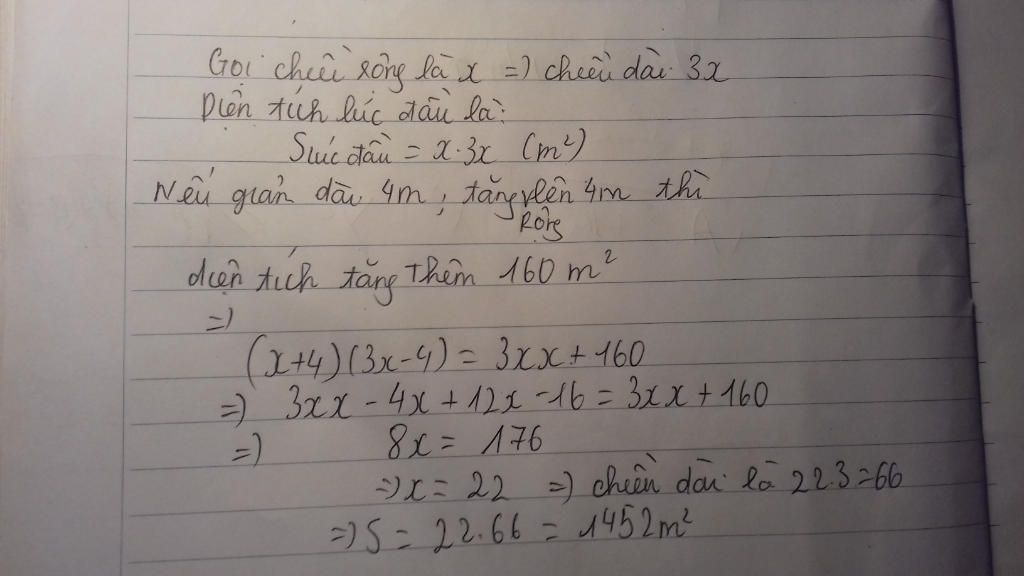 Gọi chiều rộng là x => chiều dài 3x
Diện tích lúc đầu là:
Slúc đầu = x.3x (m²)
Nếu giản dài 4m, tăng rộng lên 4m thì
diện tích tăng thêm 160 m²
=>
(x+4)(3x-4) = 3xx + 160
=> 3xx - 4x + 12x - 16 = 3xx + 160
=> 8x = 176
=> x = 22 => chiều dài là 22.3 = 66
=> S = 22.66 = 1452m²